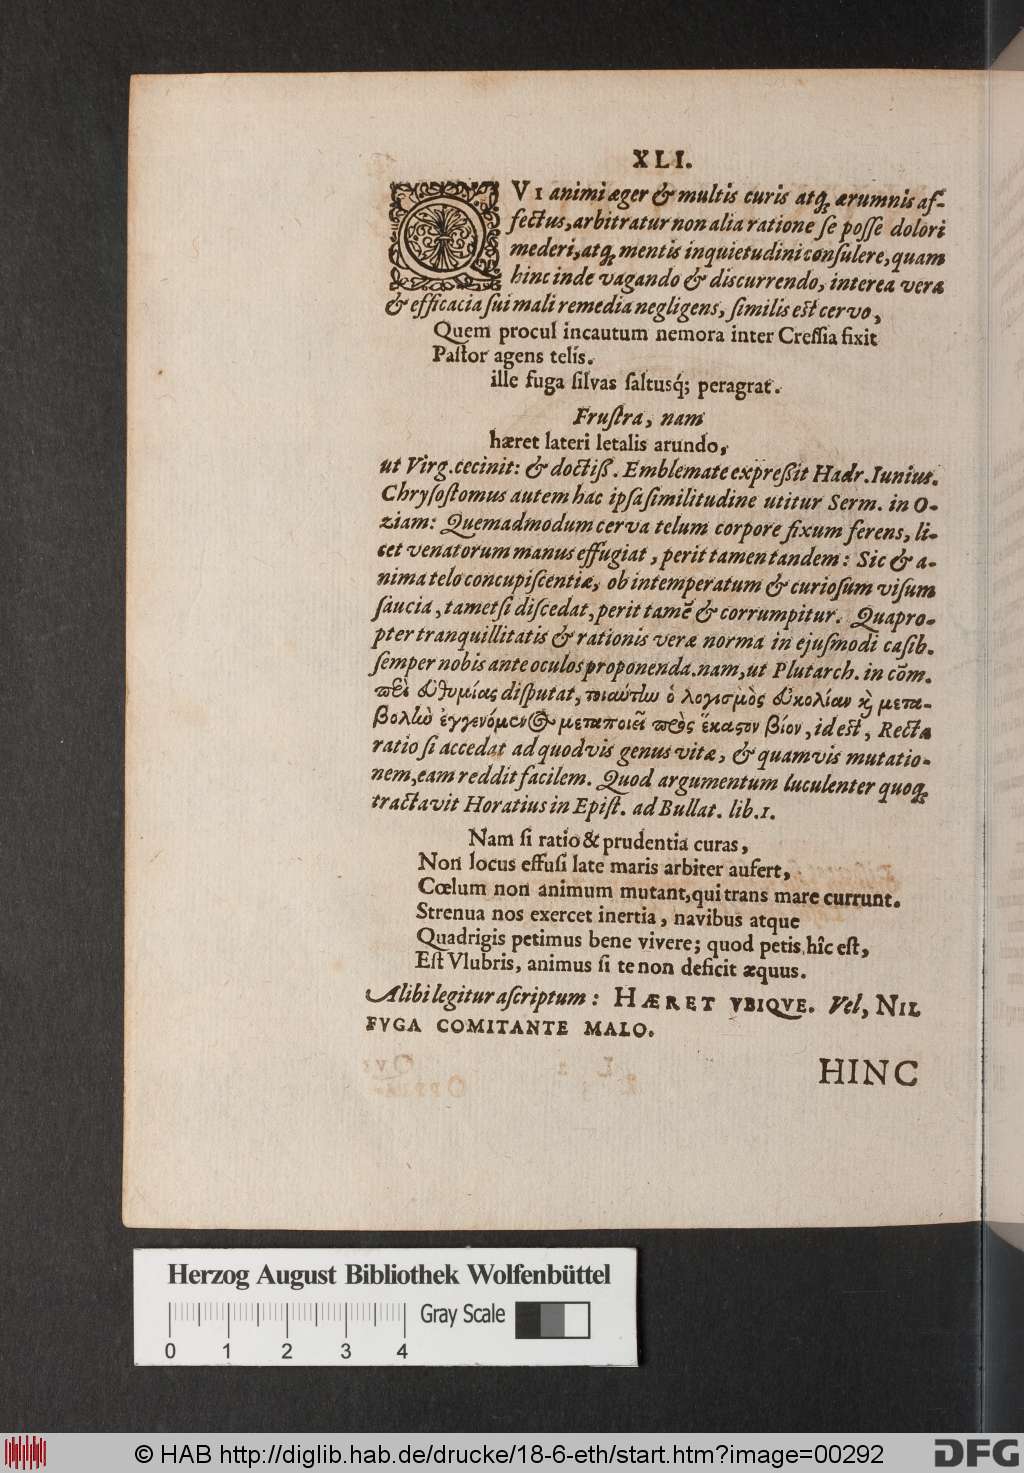 XLI.
QVI animi æger & multis curis atq; ærumnis af-
fectus, arbitratur non alia ratione se posse dolori
mederi, atq; mentis inquietudini consulere, quam
hinc inde vagando & discurrendo, interea vera
& efficacia sui mali remedia negligens, similis est cervo,
Quem procul incautum nemora inter Cressia fixit
Pastor agens telis.
ille fuga silvas saltusq́; peragrat.
Frustra, nam
hæret lateri letalis arundo,
ut Virg. cecinit: & doctiß. Emblemate expreßit Hadr. Iunius.
Chrysostomus autem hac ipsa similitudine utitur Serm. in O-
ziam: Quemadmodum cerva telum corpore fixum ferens, li-
cet venatorum manus effugiat, perit tamen tandem: Sic & a-
nima telo concupiscentiæ, ob intemperatum & curiosum visum
saucia, tametsi discedat, perit tamẽ & corrumpitur. Quapro-
pter tranquillitatis & rationis veræ norma in ejusmodi casib.
semper nobis ante oculos proponenda. nam, ut Plutarch. in cõm.
περὶ εὐθυμίας disputat, τοιαύτην ὁ λογισμὸς εὐκολίαν κ̀ μετα-
βολὴν ἐγγενόμενος μεταποιεῖ πρὸς ἕκαστον βίον, id est, Recta
ratio si accedat ad quodvis genus vitæ, & quamvis mutatio-
nem, eam reddit facilem. Quod argumentum luculenter quoq;
tractavit Horatius in Epist. ad Bullat. lib.1.
Nam si ratio & prudentia curas,
Non locus effusi late maris arbiter aufert,
Cœlum non animum mutant, qui trans mare currunt.
Strenua nos exercet inertia, navibus atque
Quadrigis petimus bene vivere; quod petis hîc est,
Est Vlubris, animus si te non deficit æquus.
Alibi legitur ascriptum: HÆRET VBIQVE. Vel, NIL
FVGA COMITANTE MALO.
HINC
Herzog August Bibliothek Wolfenbüttel
Gray Scale
0 1 2 3 4
© HAB http://diglib.hab.de/drucke/18-6-eth/start.htm?image=00292
DFG